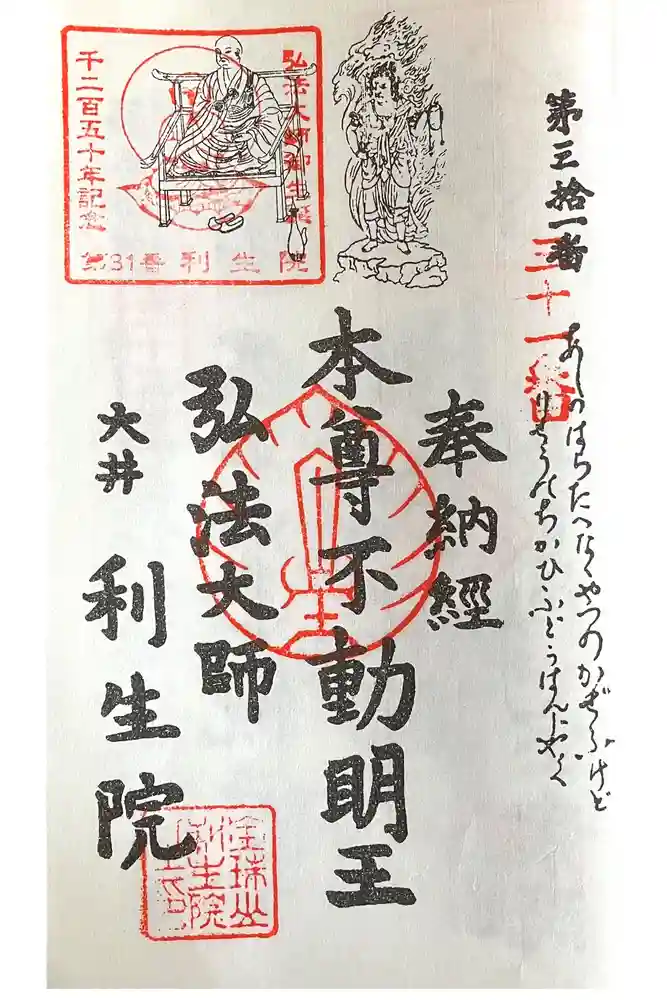 第三拾一番
三十一番
あしのはらたへなくやつのかぜふけど
りせうのちかひふどうはんじやく
奉納經
本尊不動明王
弘法大師
大井 利生院
弘法大師御生誕
千二百五十年記念
第31番利生院
利生院